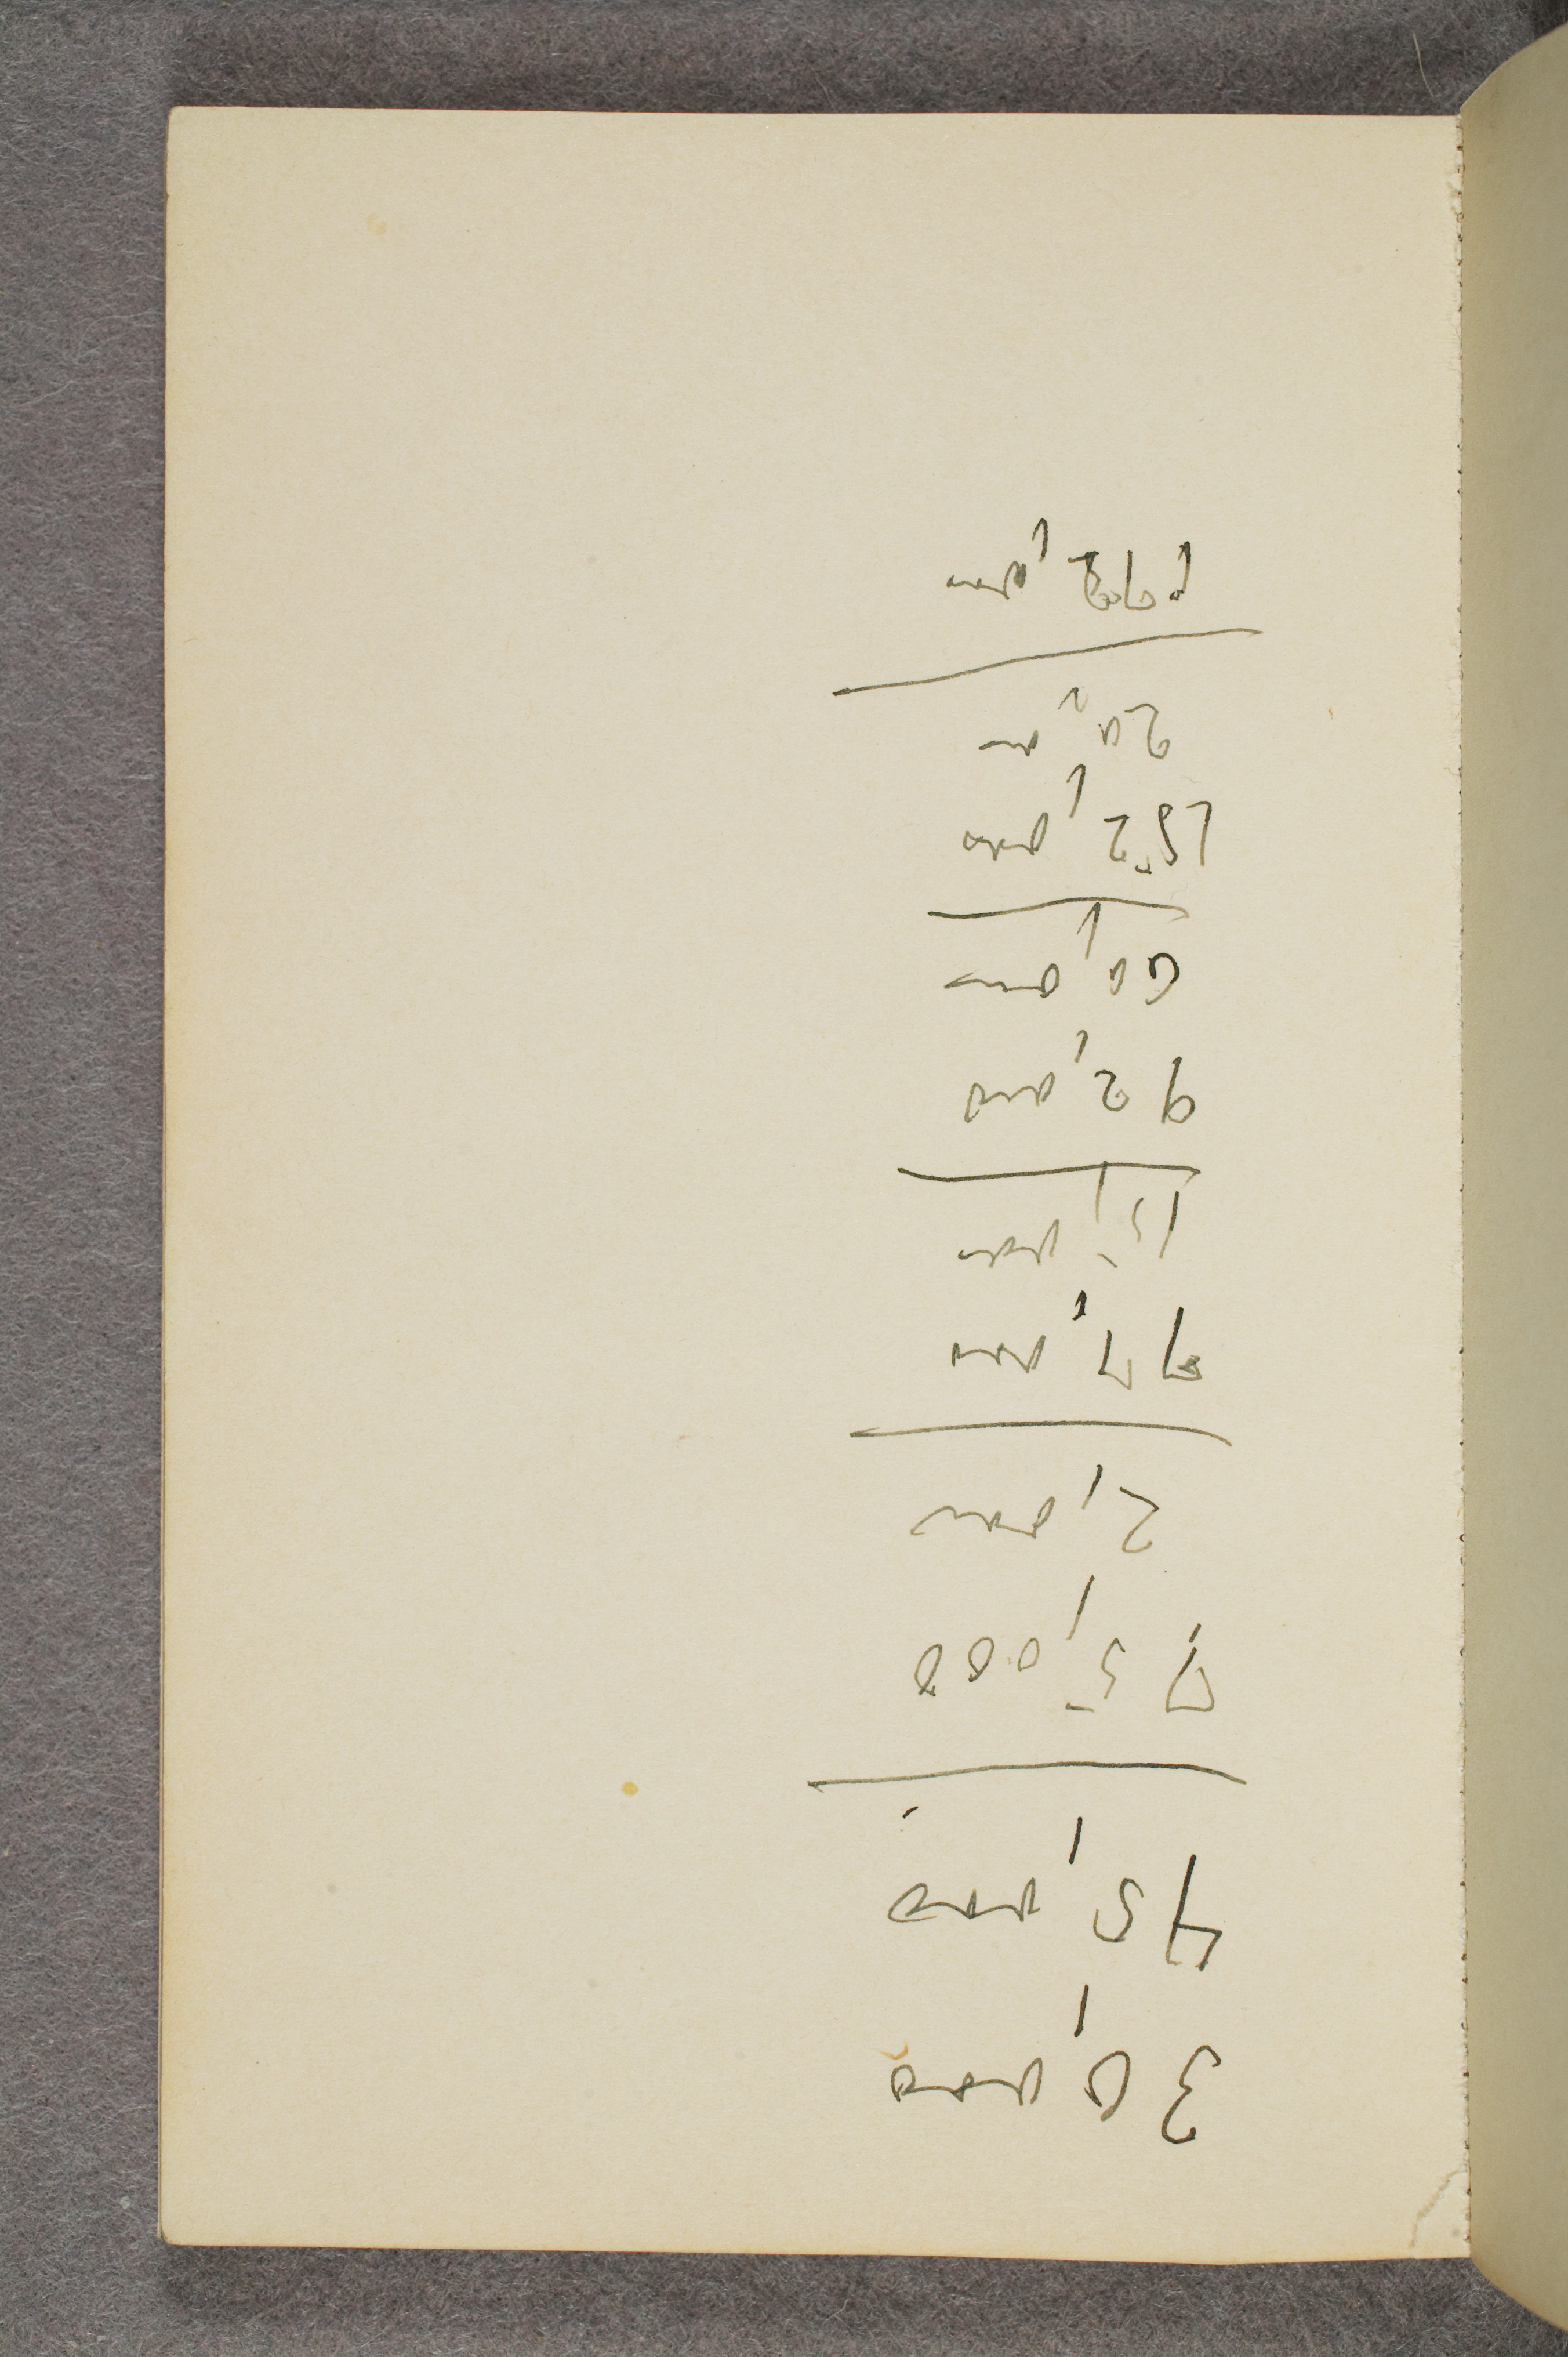 30,000
45,000
75,000
2,000
77,000
15,000
92,000
60,000
152,000
20,000
172,000